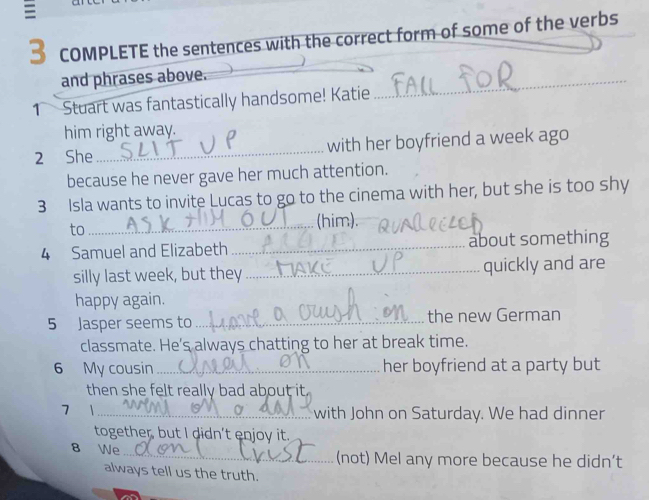 3 COMPLETE the sentences with the correct form of some of the verbs
and phrases above.
1 Stuart was fantastically handsome! Katie FALL FOR
him right away.
2 She SLIT UP with her boyfriend a week ago
because he never gave her much attention.
3 Isla wants to invite Lucas to go to the cinema with her, but she is too shy
to ASK HIM OUT (him).
4 Samuel and Elizabeth QUARRELED about something
silly last week, but they MAKE UP quickly and are
happy again.
5 Jasper seems to have a crush on the new German
classmate. He's always chatting to her at break time.
6 My cousin cheat on her boyfriend at a party but
then she felt really bad about it.
7 I went on a date with John on Saturday. We had dinner
together, but I didn't enjoy it.
8 We don't trust (not) Mel any more because he didn't
always tell us the truth.